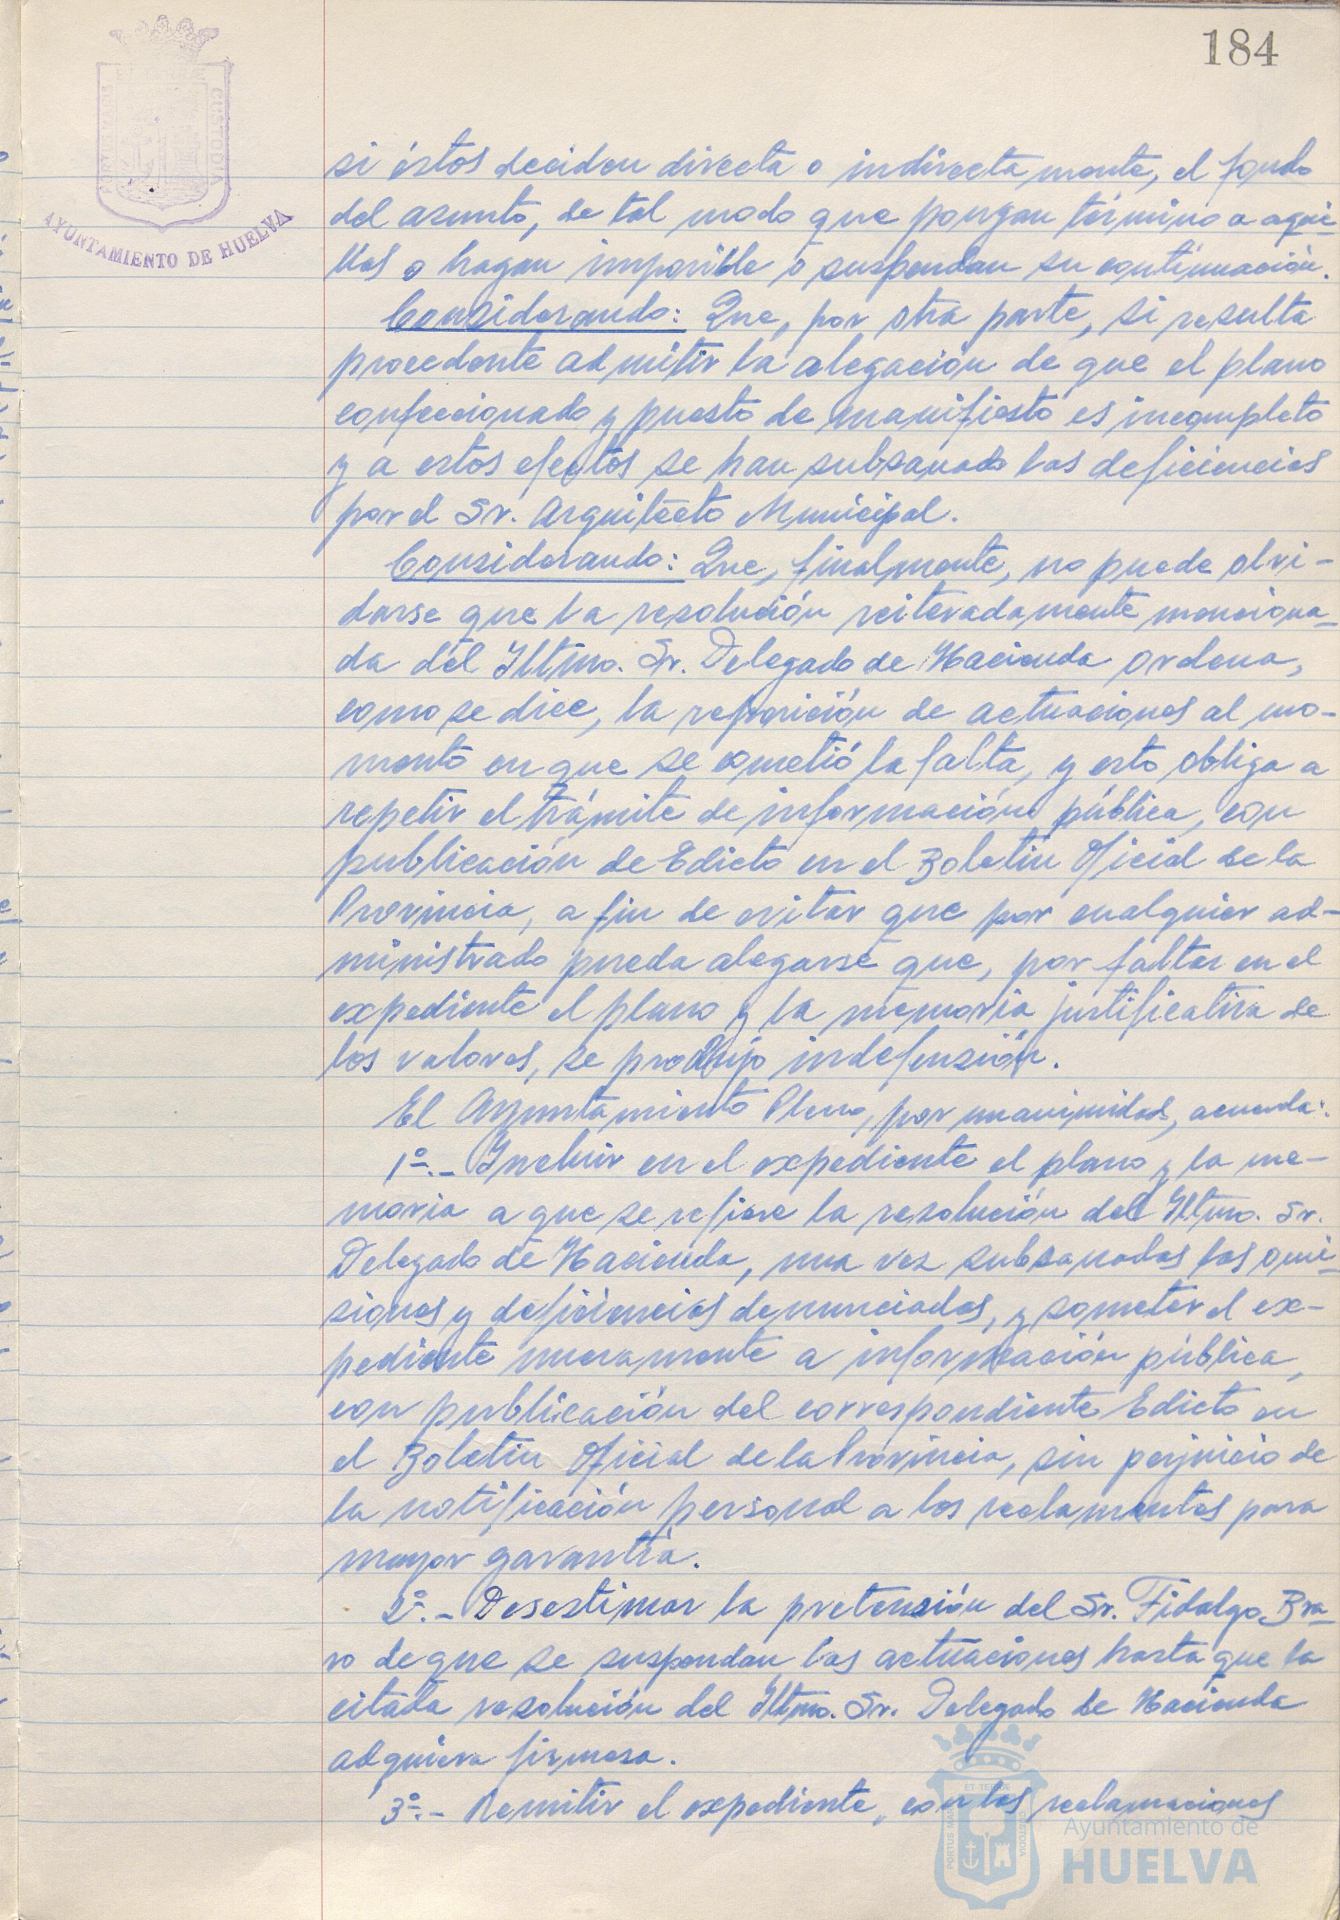 184
ET TERRÆ
PORTUS MARIS
CUSTODIA
AYUNTAMIENTO DE HUELVA
si éstos deciden directa o indirectamente, el fondo
del asunto, de tal modo que pongan término a aqué-
llos o hagan imposible o suspendan su continuación.
Considerando: Que, por otra parte, si resulta
procedente admitir la alegación de que el plano
confeccionado y puesto de manifiesto es incompleto
y a estos efectos se han subsanado las deficiencias
por el Sr. Arquitecto Municipal.
Considerando: Que, finalmente, no puede olvi-
darse que la resolución reiteradamente menciona-
da del Iltmo. Sr. Delegado de Hacienda ordena,
como se dice, la reposición de actuaciones al mo-
mento en que se cometió la falta, y esto obliga a
repetir el trámite de información pública, con
publicación de Edicto en el Boletín Oficial de la
Provincia, a fin de evitar que por cualquier ad-
ministrado pueda alegarse que, por faltar en el
expediente el plano y la memoria justificativa de
los valores, se produjo indefensión.
El Ayuntamiento Pleno, por unanimidad, acuerda:
1º.- Incluir en el expediente el plano y la me-
moria a que se refiere la resolución del Iltmo. Sr.
Delegado de Hacienda, una vez subsanadas las omi-
siones y deficiencias denunciadas, y someter el ex-
pediente nuevamente a información pública,
con publicación del correspondiente Edicto en
el Boletín Oficial de la Provincia, sin perjuicio de
la notificación personal a los reclamantes para
mayor garantía.
2º.- Desestimar la pretensión del Sr. Fidalgo Bra-
vo de que se suspendan las actuaciones hasta que la
citada resolución del Iltmo. Sr. Delegado de Hacienda
adquiera firmeza.
3º.- Remitir el expediente, con las reclamaciones
ET TERRÆ
PORTUS MARIS
CUSTODIA
Ayuntamiento de
HUELVA